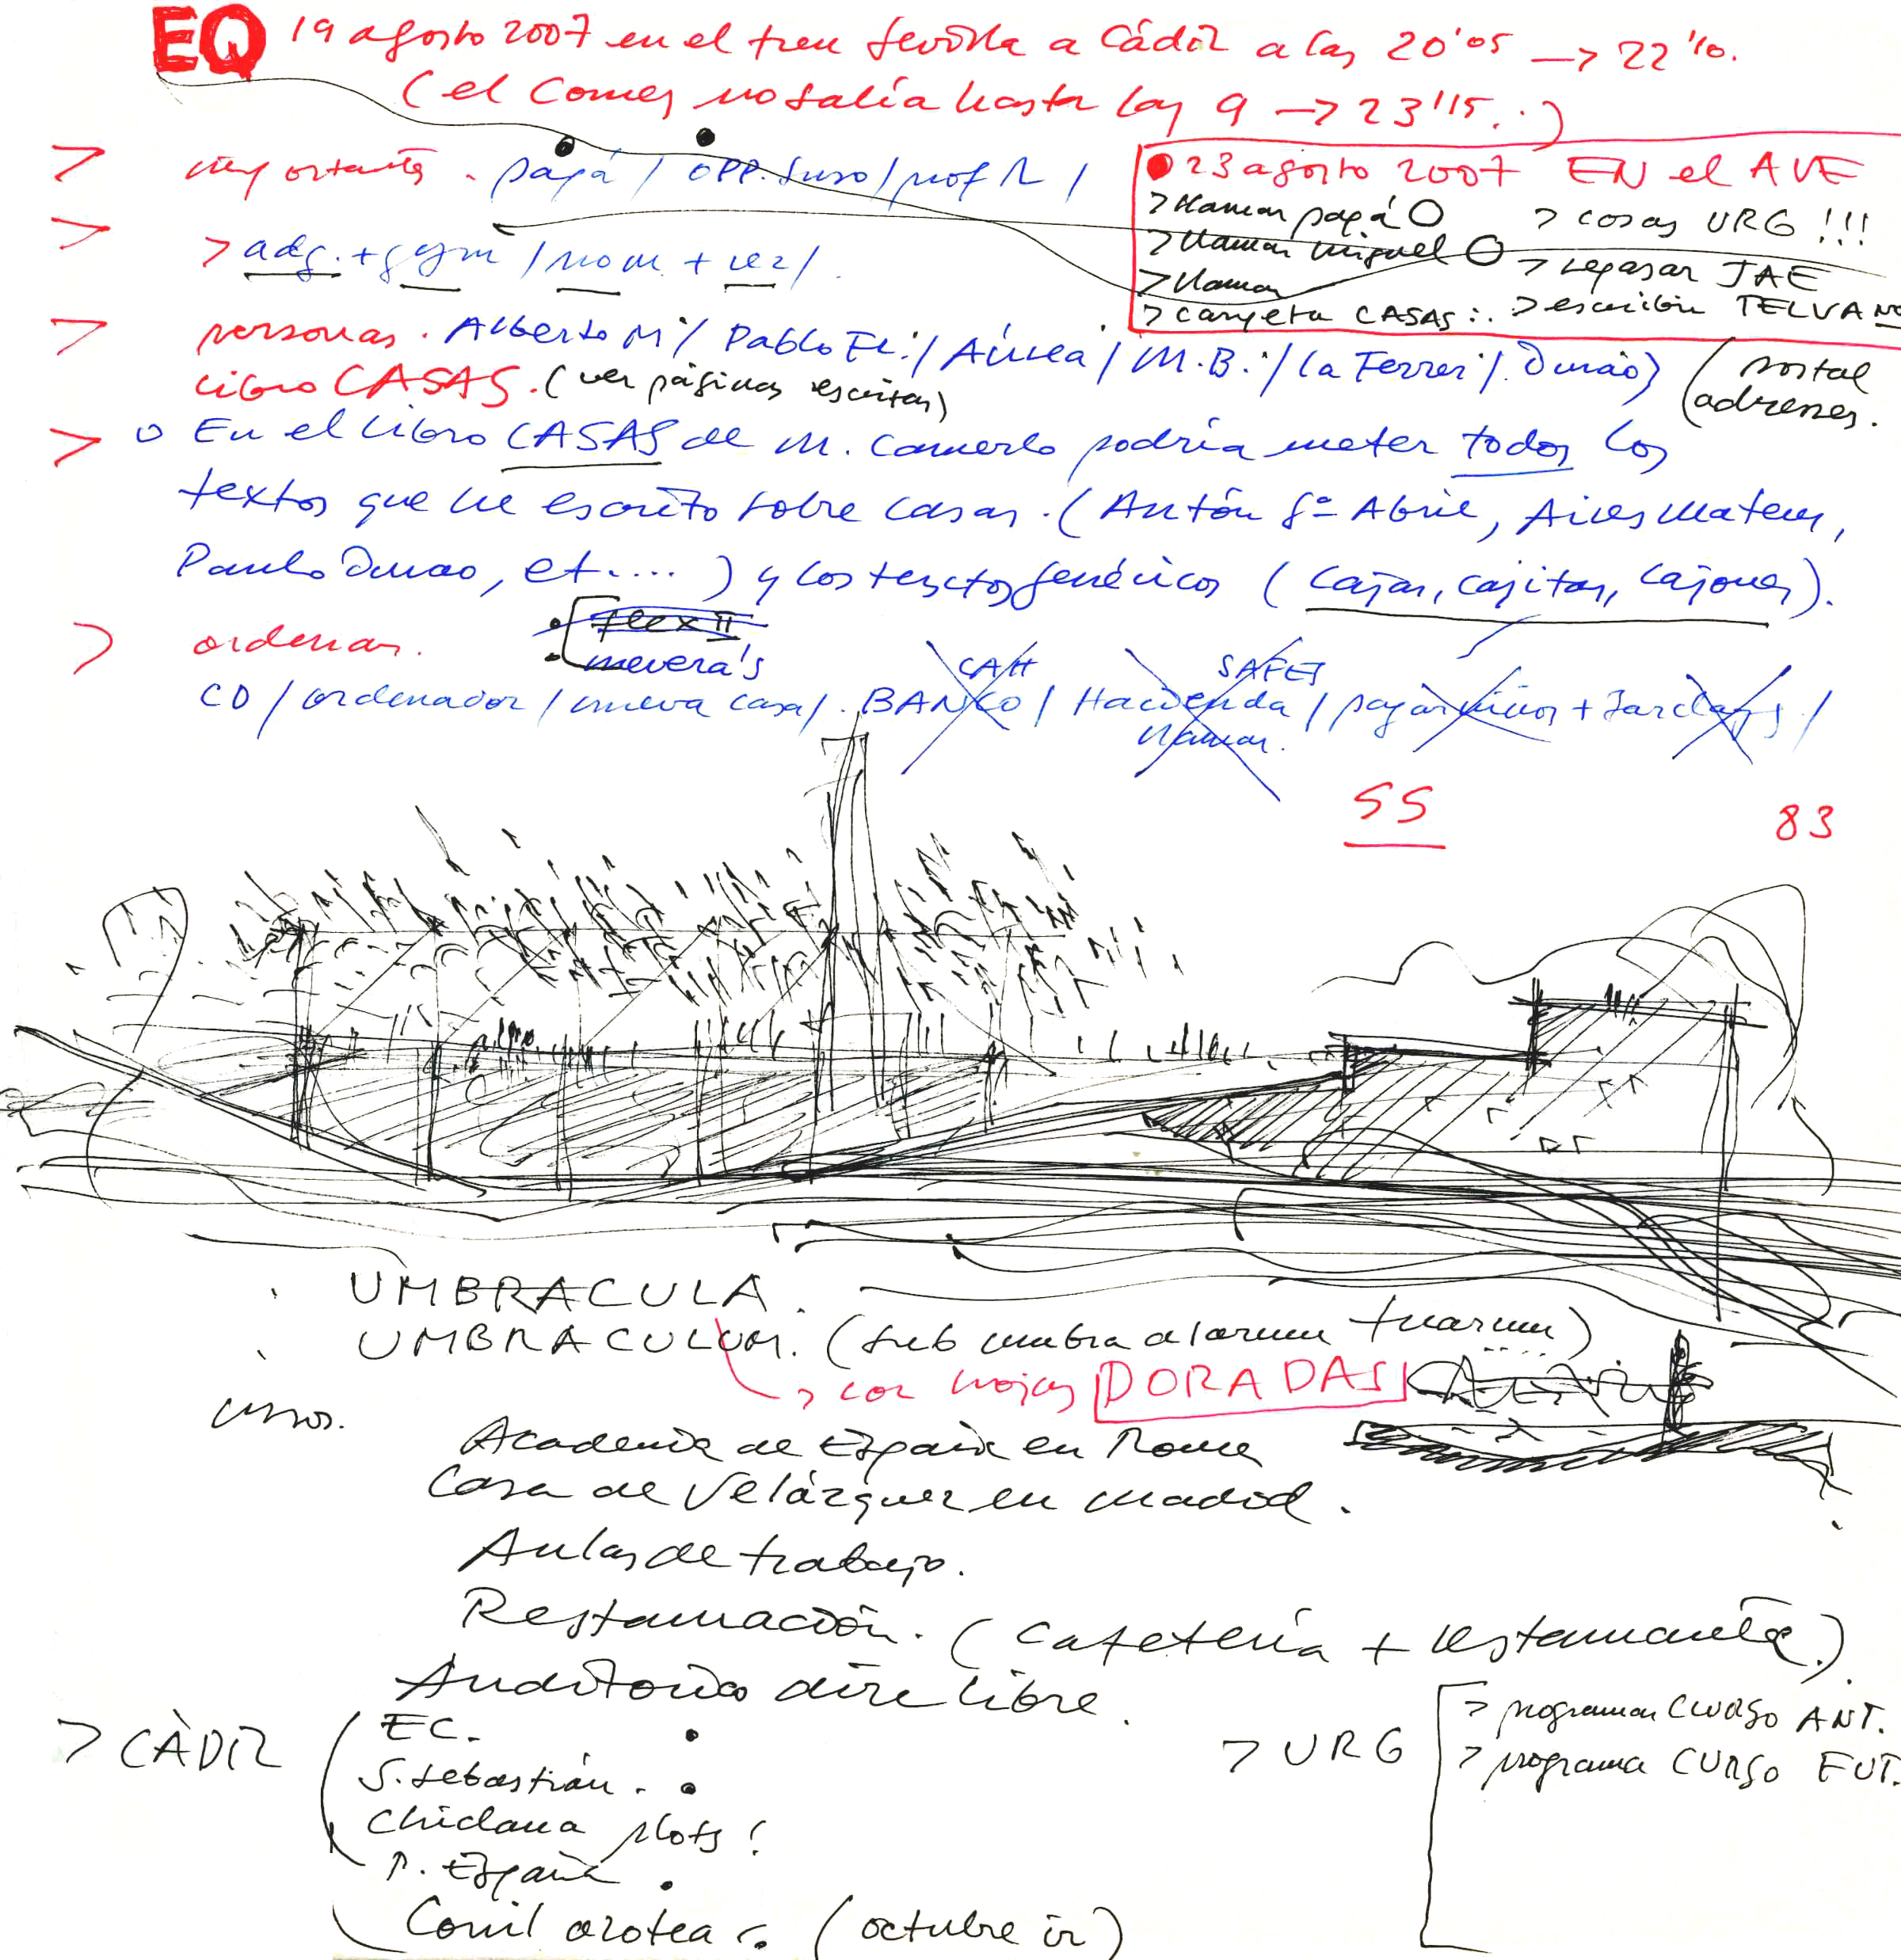 EQ 19 agosto 2007 en el tren Sevilla a Cádiz a las 20'05 → 22'10.
(el Comes no salía hasta las 9 → 23'15..)
> importante. papá / OPP. Suso / prof R /
> > adg. + gym / nom + rez /.
> personas. Alberto M: / Pablo FL: / Áurea / M.B.: / la Ferrer / Durão) (postal adresses.
libro CASAS. (ver páginas escritas)
● 23 agosto 2007 EN el AVE
> llamar papá O
> llamar Miguel O
> llamar
> carpeta CASAS:.
> cosas URG !!!
> repasar JAE
> escribir TELVA NO
> o En el libro CASAS de M. Camerlo podría meter todos los
textos que he escrito sobre casas. (Antón Gª Abril, Aires Mateus,
Paulo Durao, et....) y los textos genéricos (cajas, cajitas, cajones).
> ordenar.
flex II
nevera's
CD / ordenador / nueva casa /. BANCO / Hacienda / pagar + Barclays /
CAH
SAFEI
llamar.
55
83
UMBRACULA.
UMBRACULUM. (sub umbra alarum tuarum)
> con hojas DORADAS
usos.
Academia de España en Roma
Casa de Velázquez en Madrid.
Aulas de trabajo.
Restauración. (cafetería + restaurante.)
Auditorio aire libre.
> CÀDIZ
EC.
S. Sebastián.
Chiclana plots!
P. España.
Conil azotea. (octubre ir)
> URG
> programar CURSO ANT.
> programa CURSO FUT.